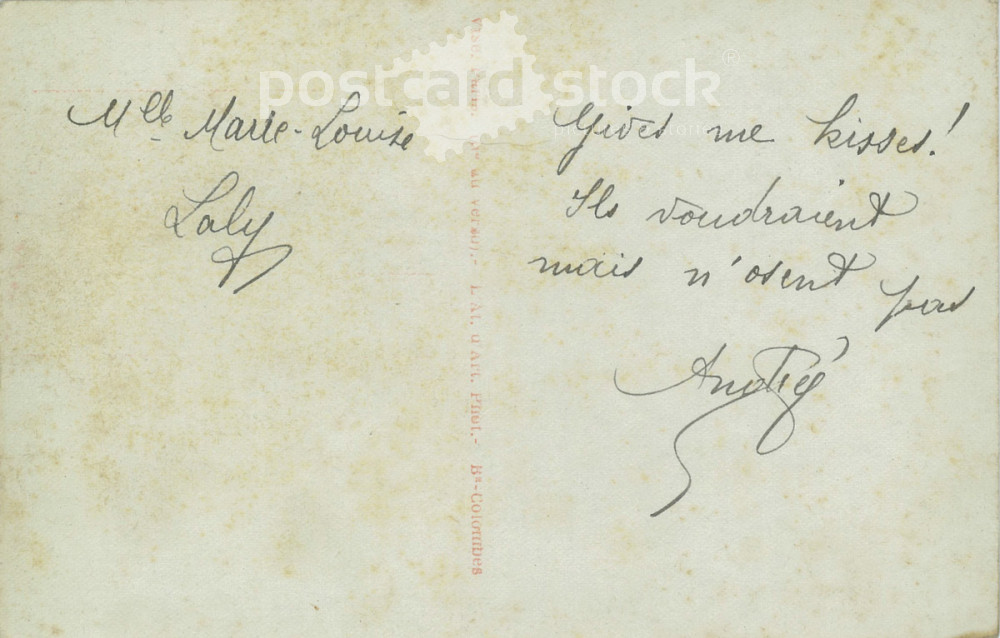 postcard stock
Mlle Marie-Louise
Laly
Gives me kisses!
Ils voudraient
mais n'osent pas
au verso).- L'At. d'Art. Phot.- Bs-Colombes